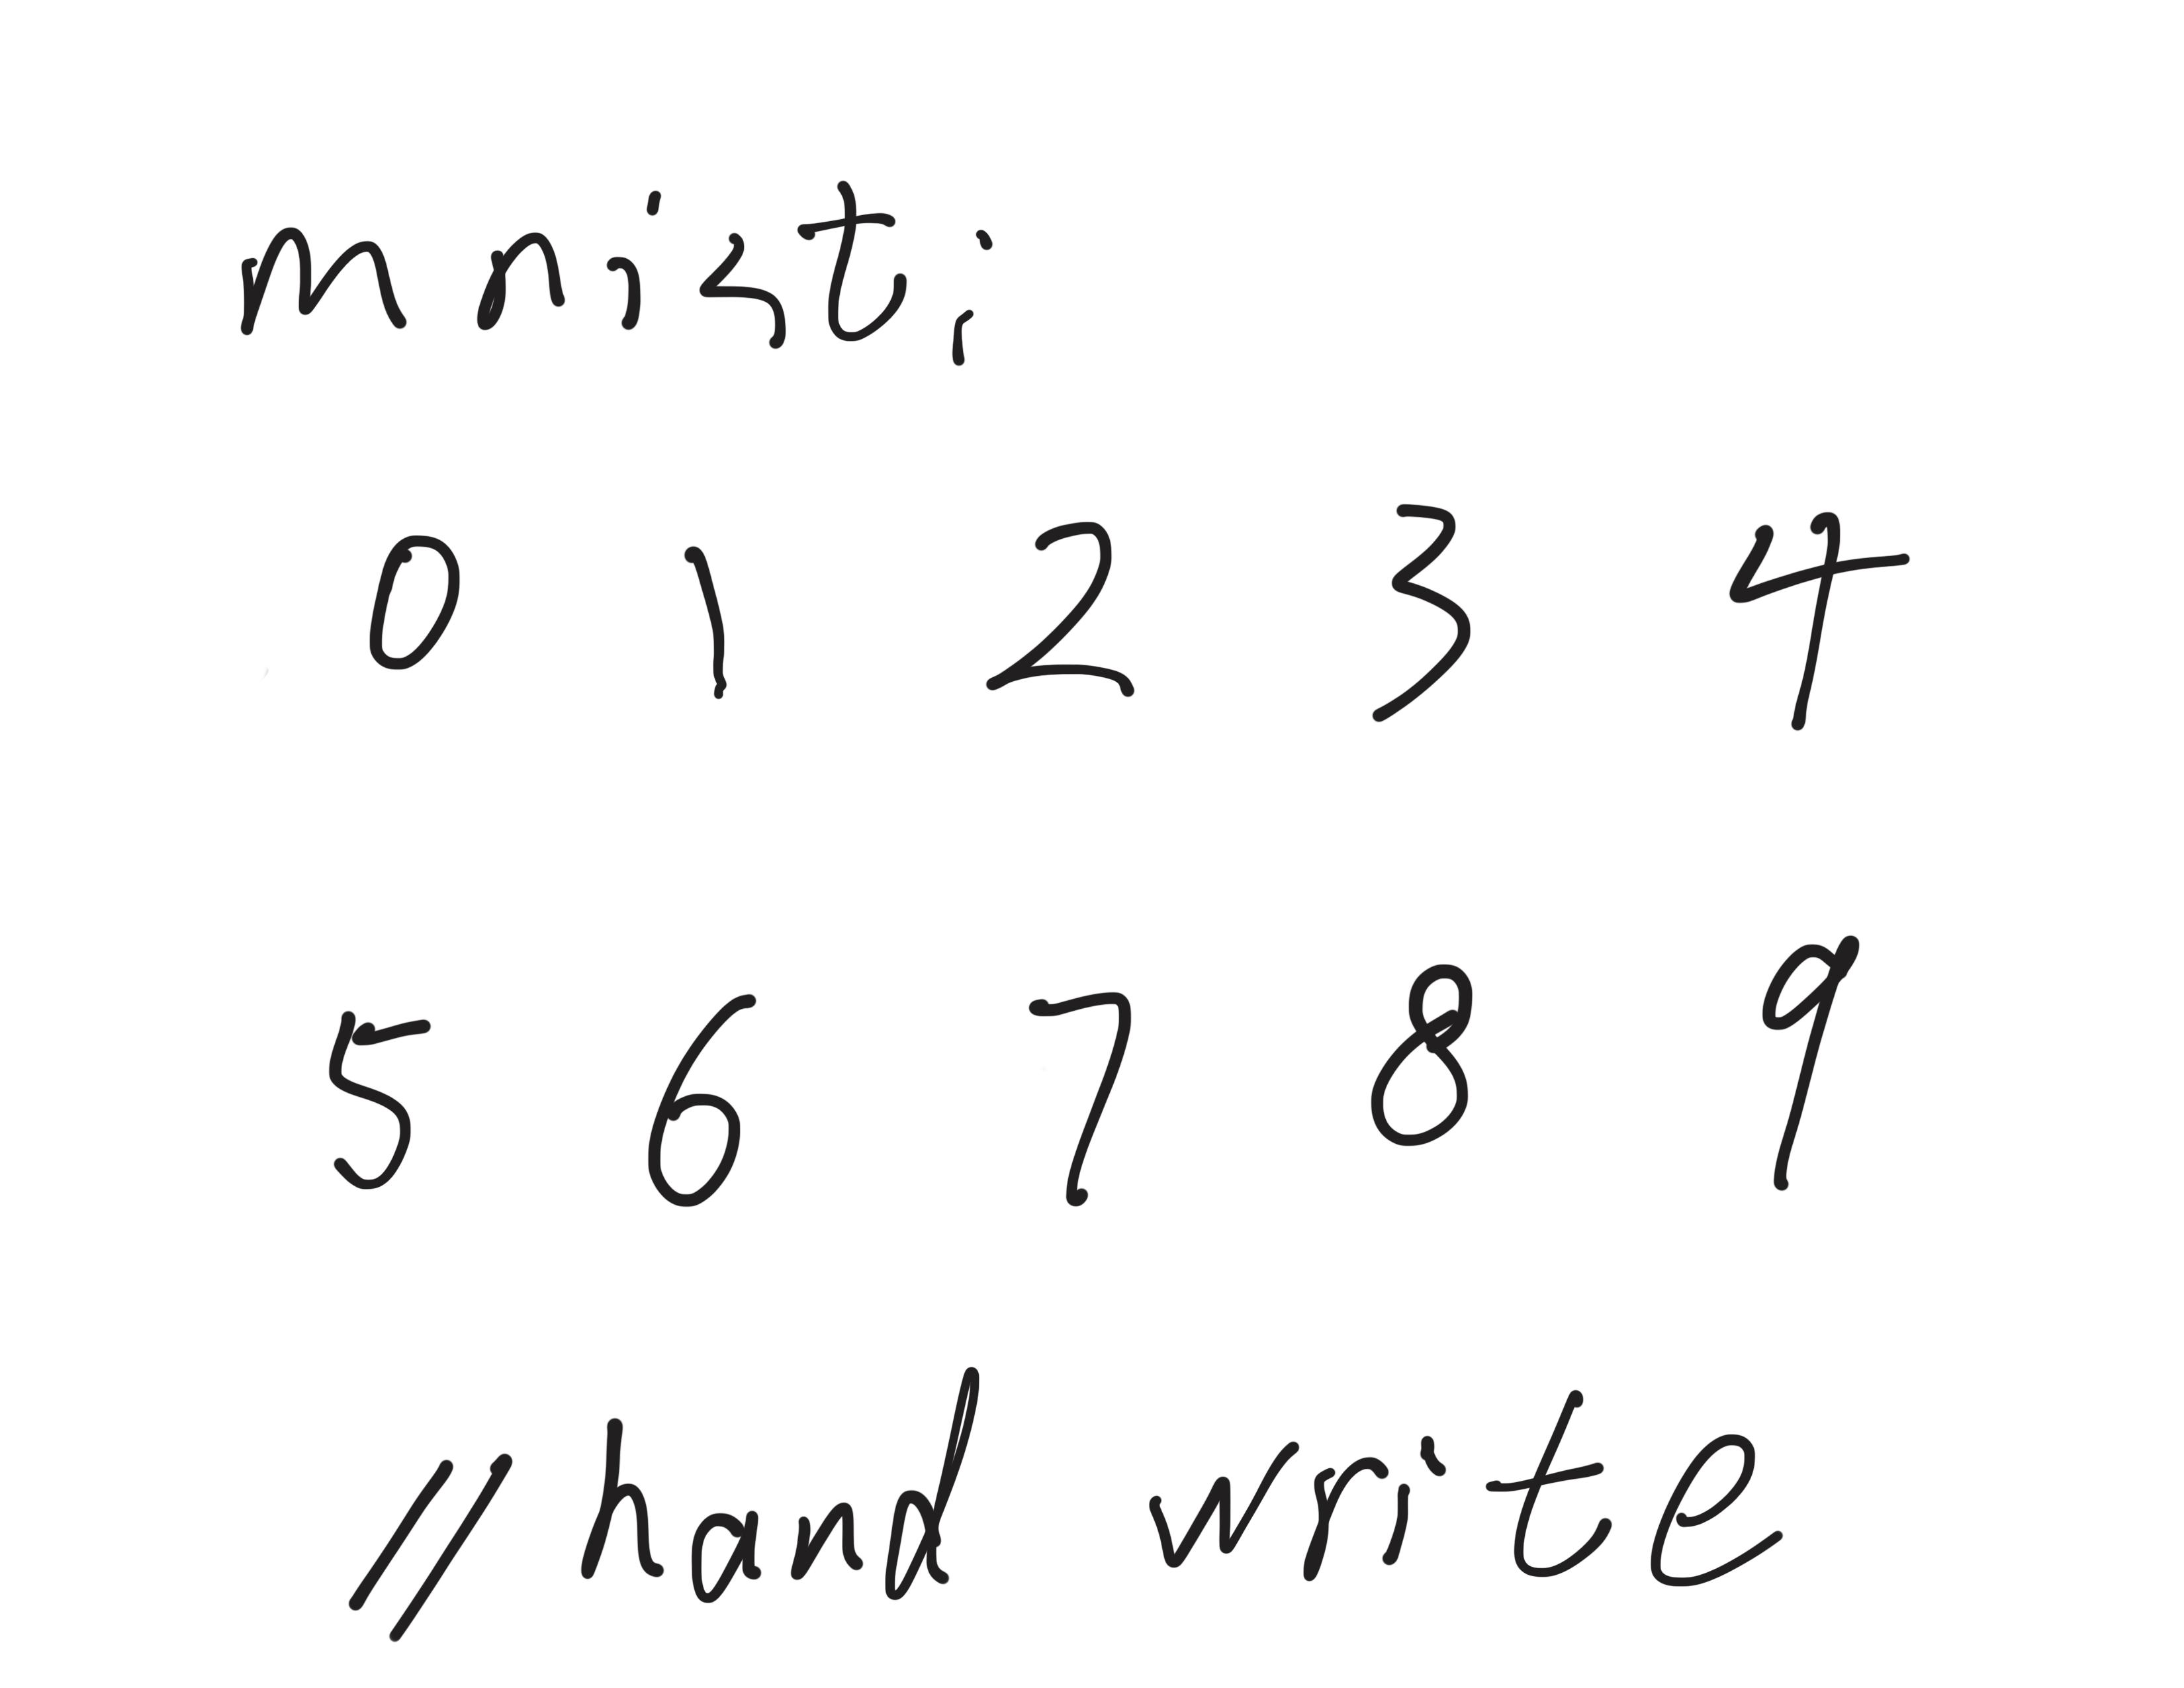 mnist;
0 1 2 3 4
5 6 7 8 9
// hand write